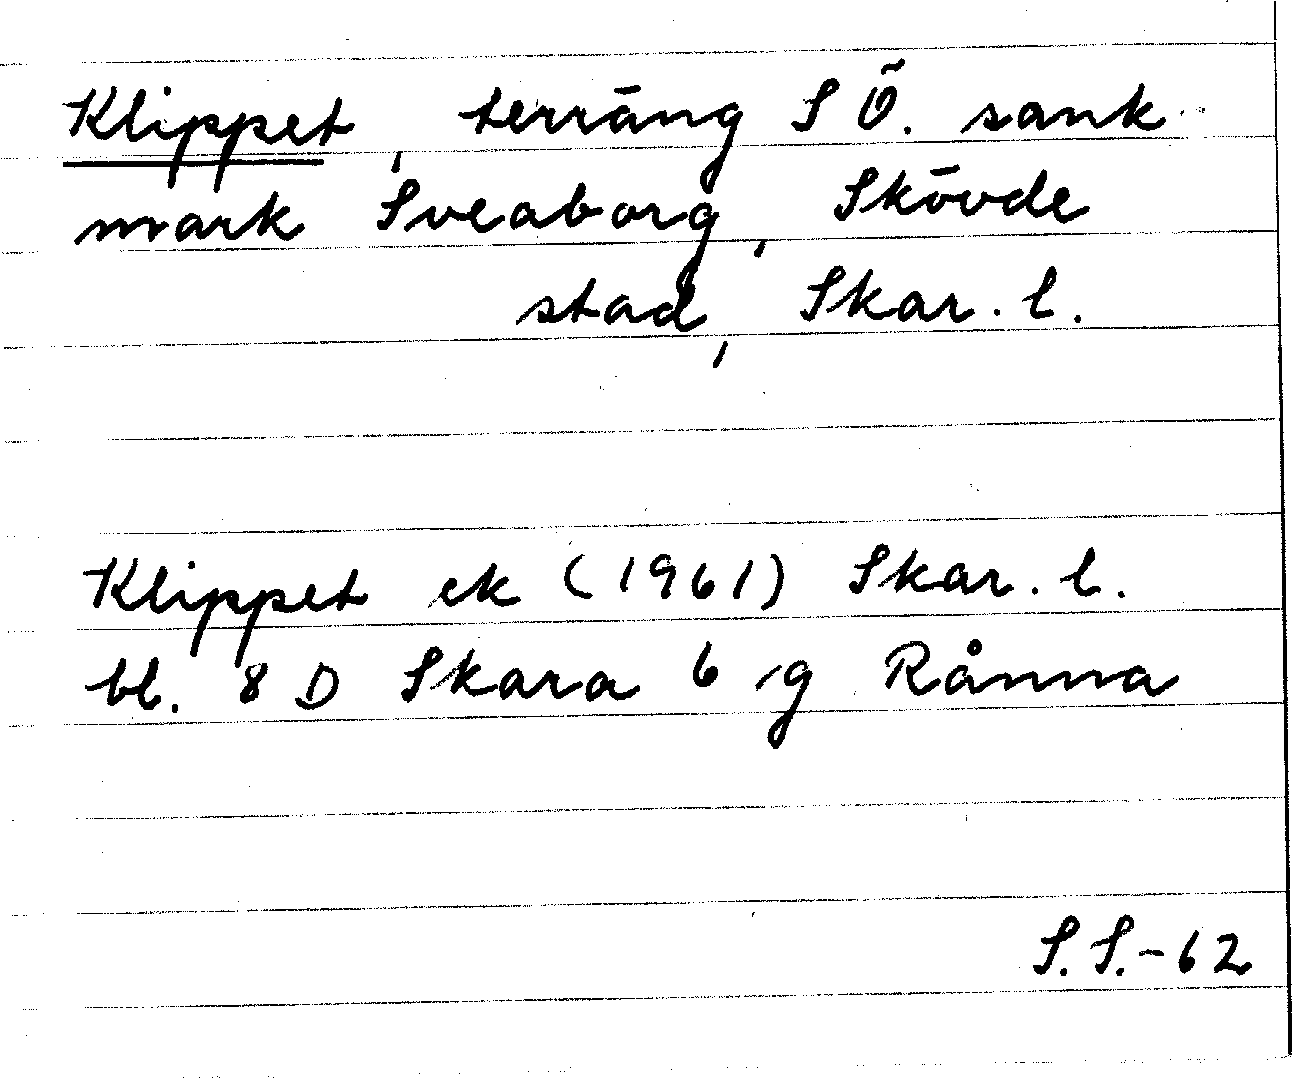 Klippet, terräng SÖ. sank
mark Sveaborg, Skövde
stad, Skar. l.
Klippet ek (1961) Skar. l.
bl. 8 D Skara 6 g Rånna
S.S.-62